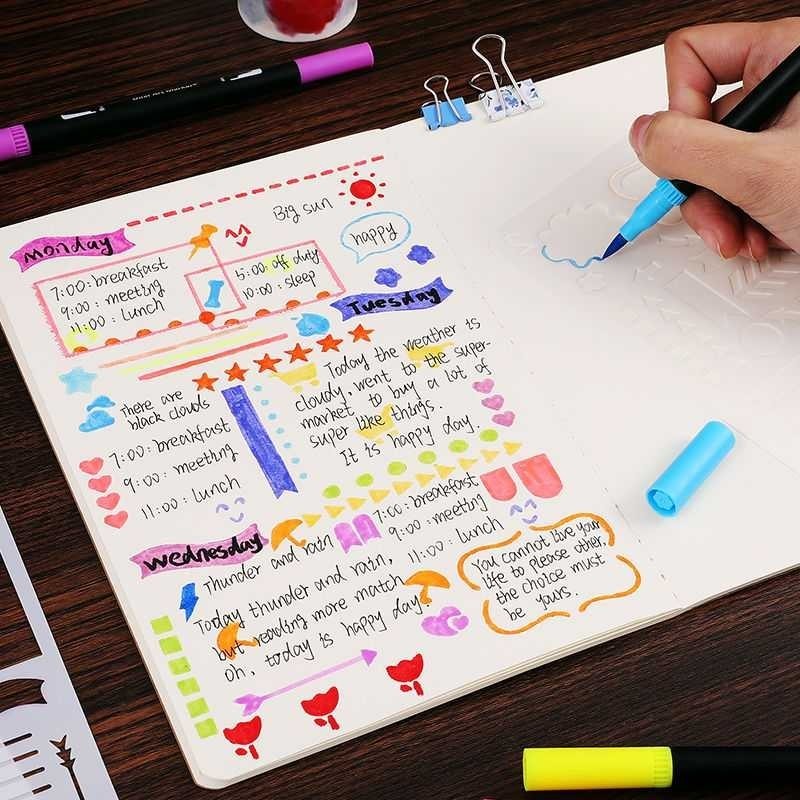 Big sun
monday
happy
7:00: breakfast
9:00: meeting
11:00: Lunch
5:00: off duty
10:00: sleep
Tuesday
There are
black clouds
7:00: breakfast
9:00: meeting
11:00: Lunch
Today the weather is
cloudy, went to the super-
market to buy a lot of
super like things.
It is happy day.
wednesday
Thunder and rain
7:00: breakfast
9:00: meeting
11:00: Lunch
Today thunder and rain,
but reading more match
oh, today is happy day!
You cannot live your
life to please other.
the choice must
be yours.